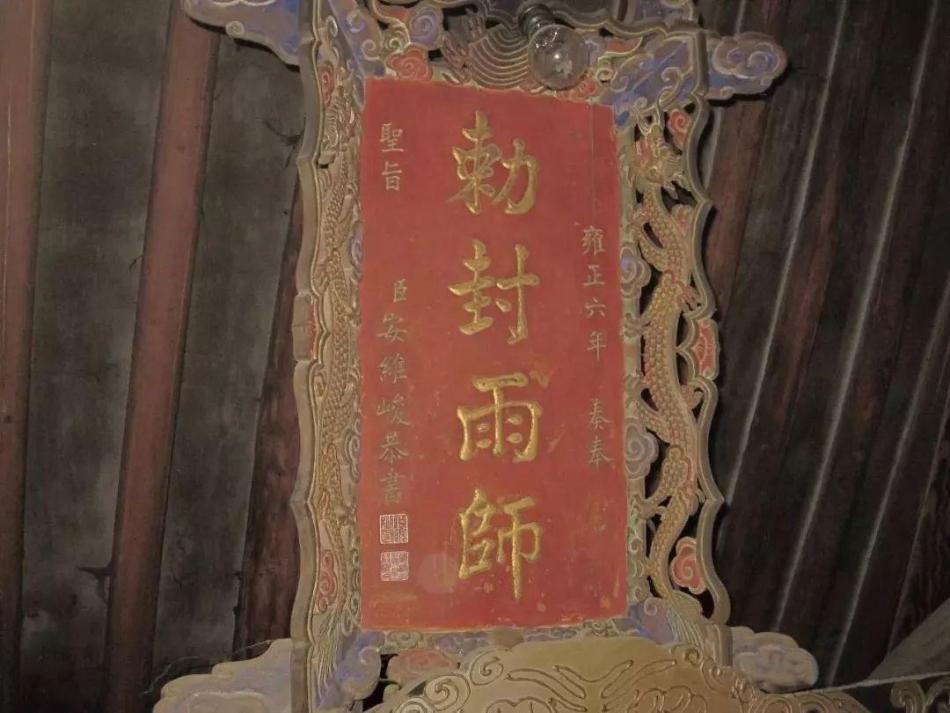 雍正六年 奏奉
勅封雨師
聖旨
臣安維峻恭書